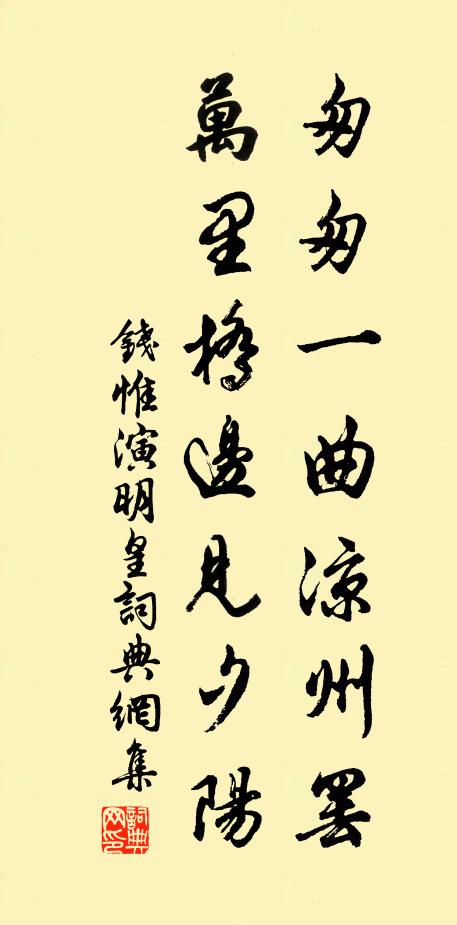 匆匆一曲涼州罷
萬里橋邊見夕陽
錢惟演明皇詞典網集
詞典網印